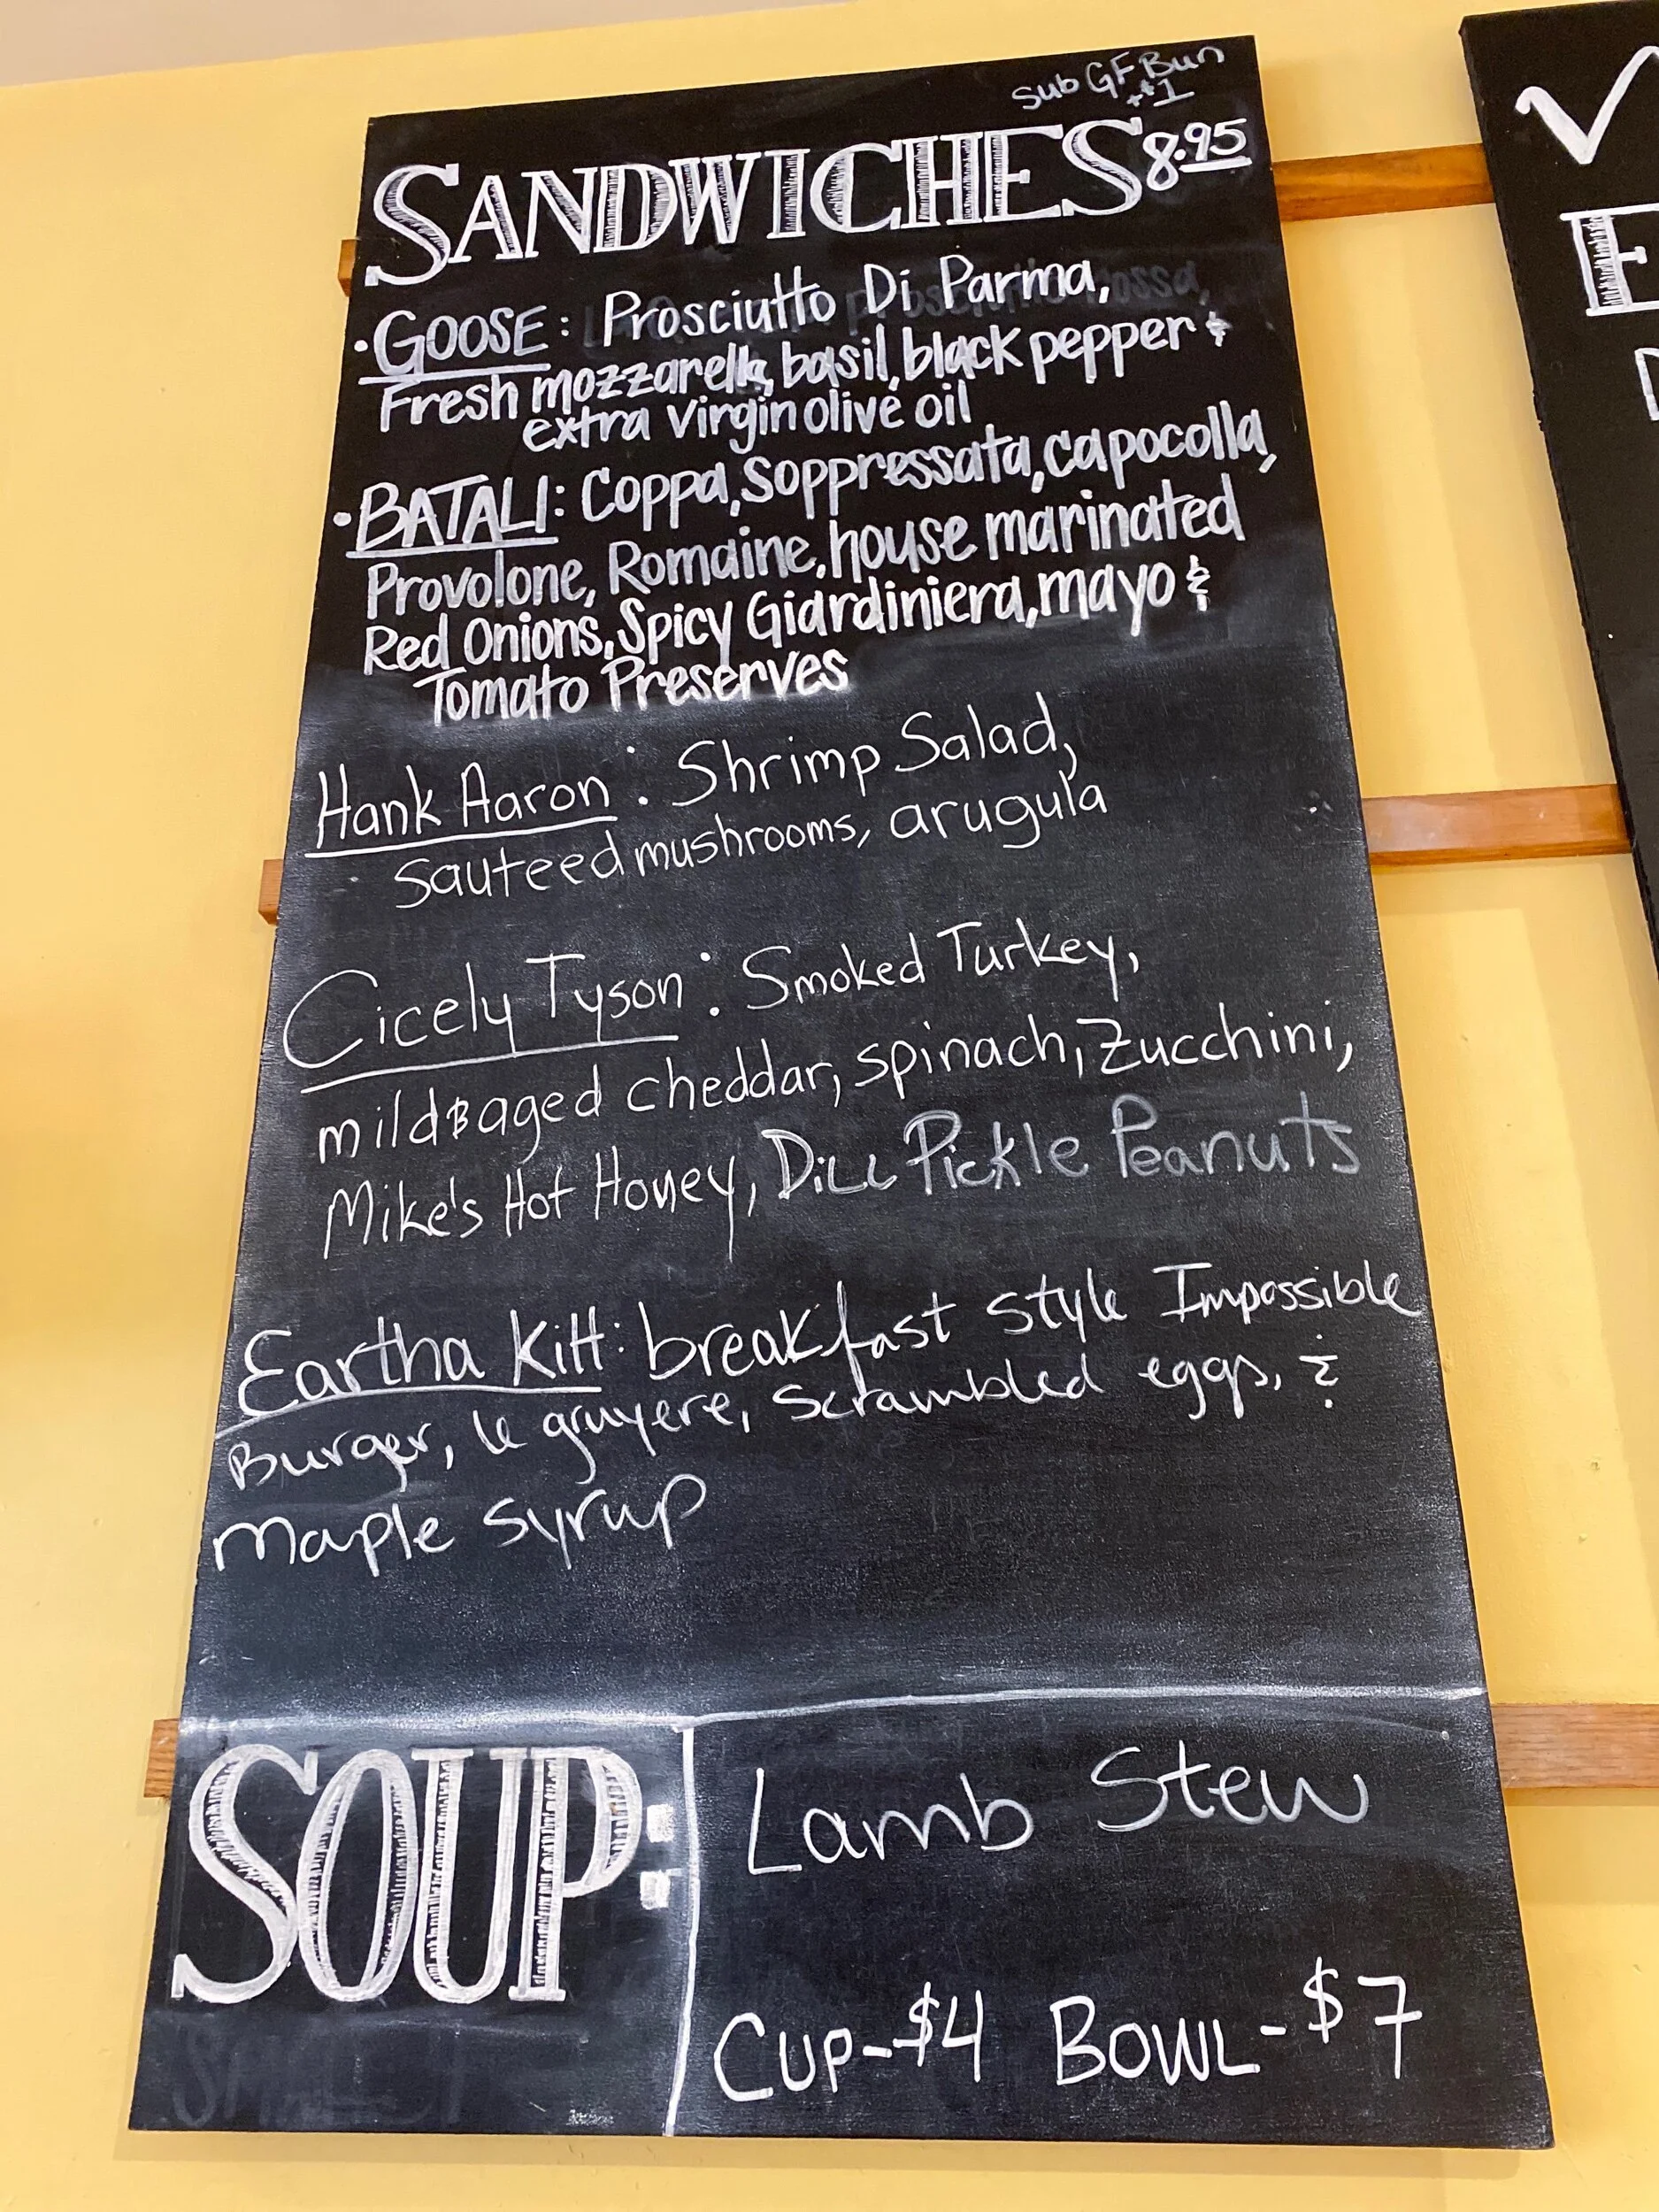 Sub GF Bun
+$1
SANDWICHES 8.95
• GOOSE: Prosciutto Di Parma,
Fresh mozzarella, basil, black pepper &
extra virgin olive oil
• BATALI: Coppa, Soppressata, capocolla,
Provolone, Romaine, house marinated
Red Onions, Spicy Giardiniera, mayo &
Tomato Preserves
Hank Aaron: Shrimp Salad,
sauteed mushrooms, arugula
Cicely Tyson: Smoked Turkey,
mild aged cheddar, spinach, Zucchini,
Mike's Hot Honey, Dill Pickle Peanuts
Eartha Kitt: breakfast style Impossible
Burger, le gruyere, Scrambled eggs, &
Maple syrup
SOUP:
Lamb Stew
CUP-$4 BOWL-$7